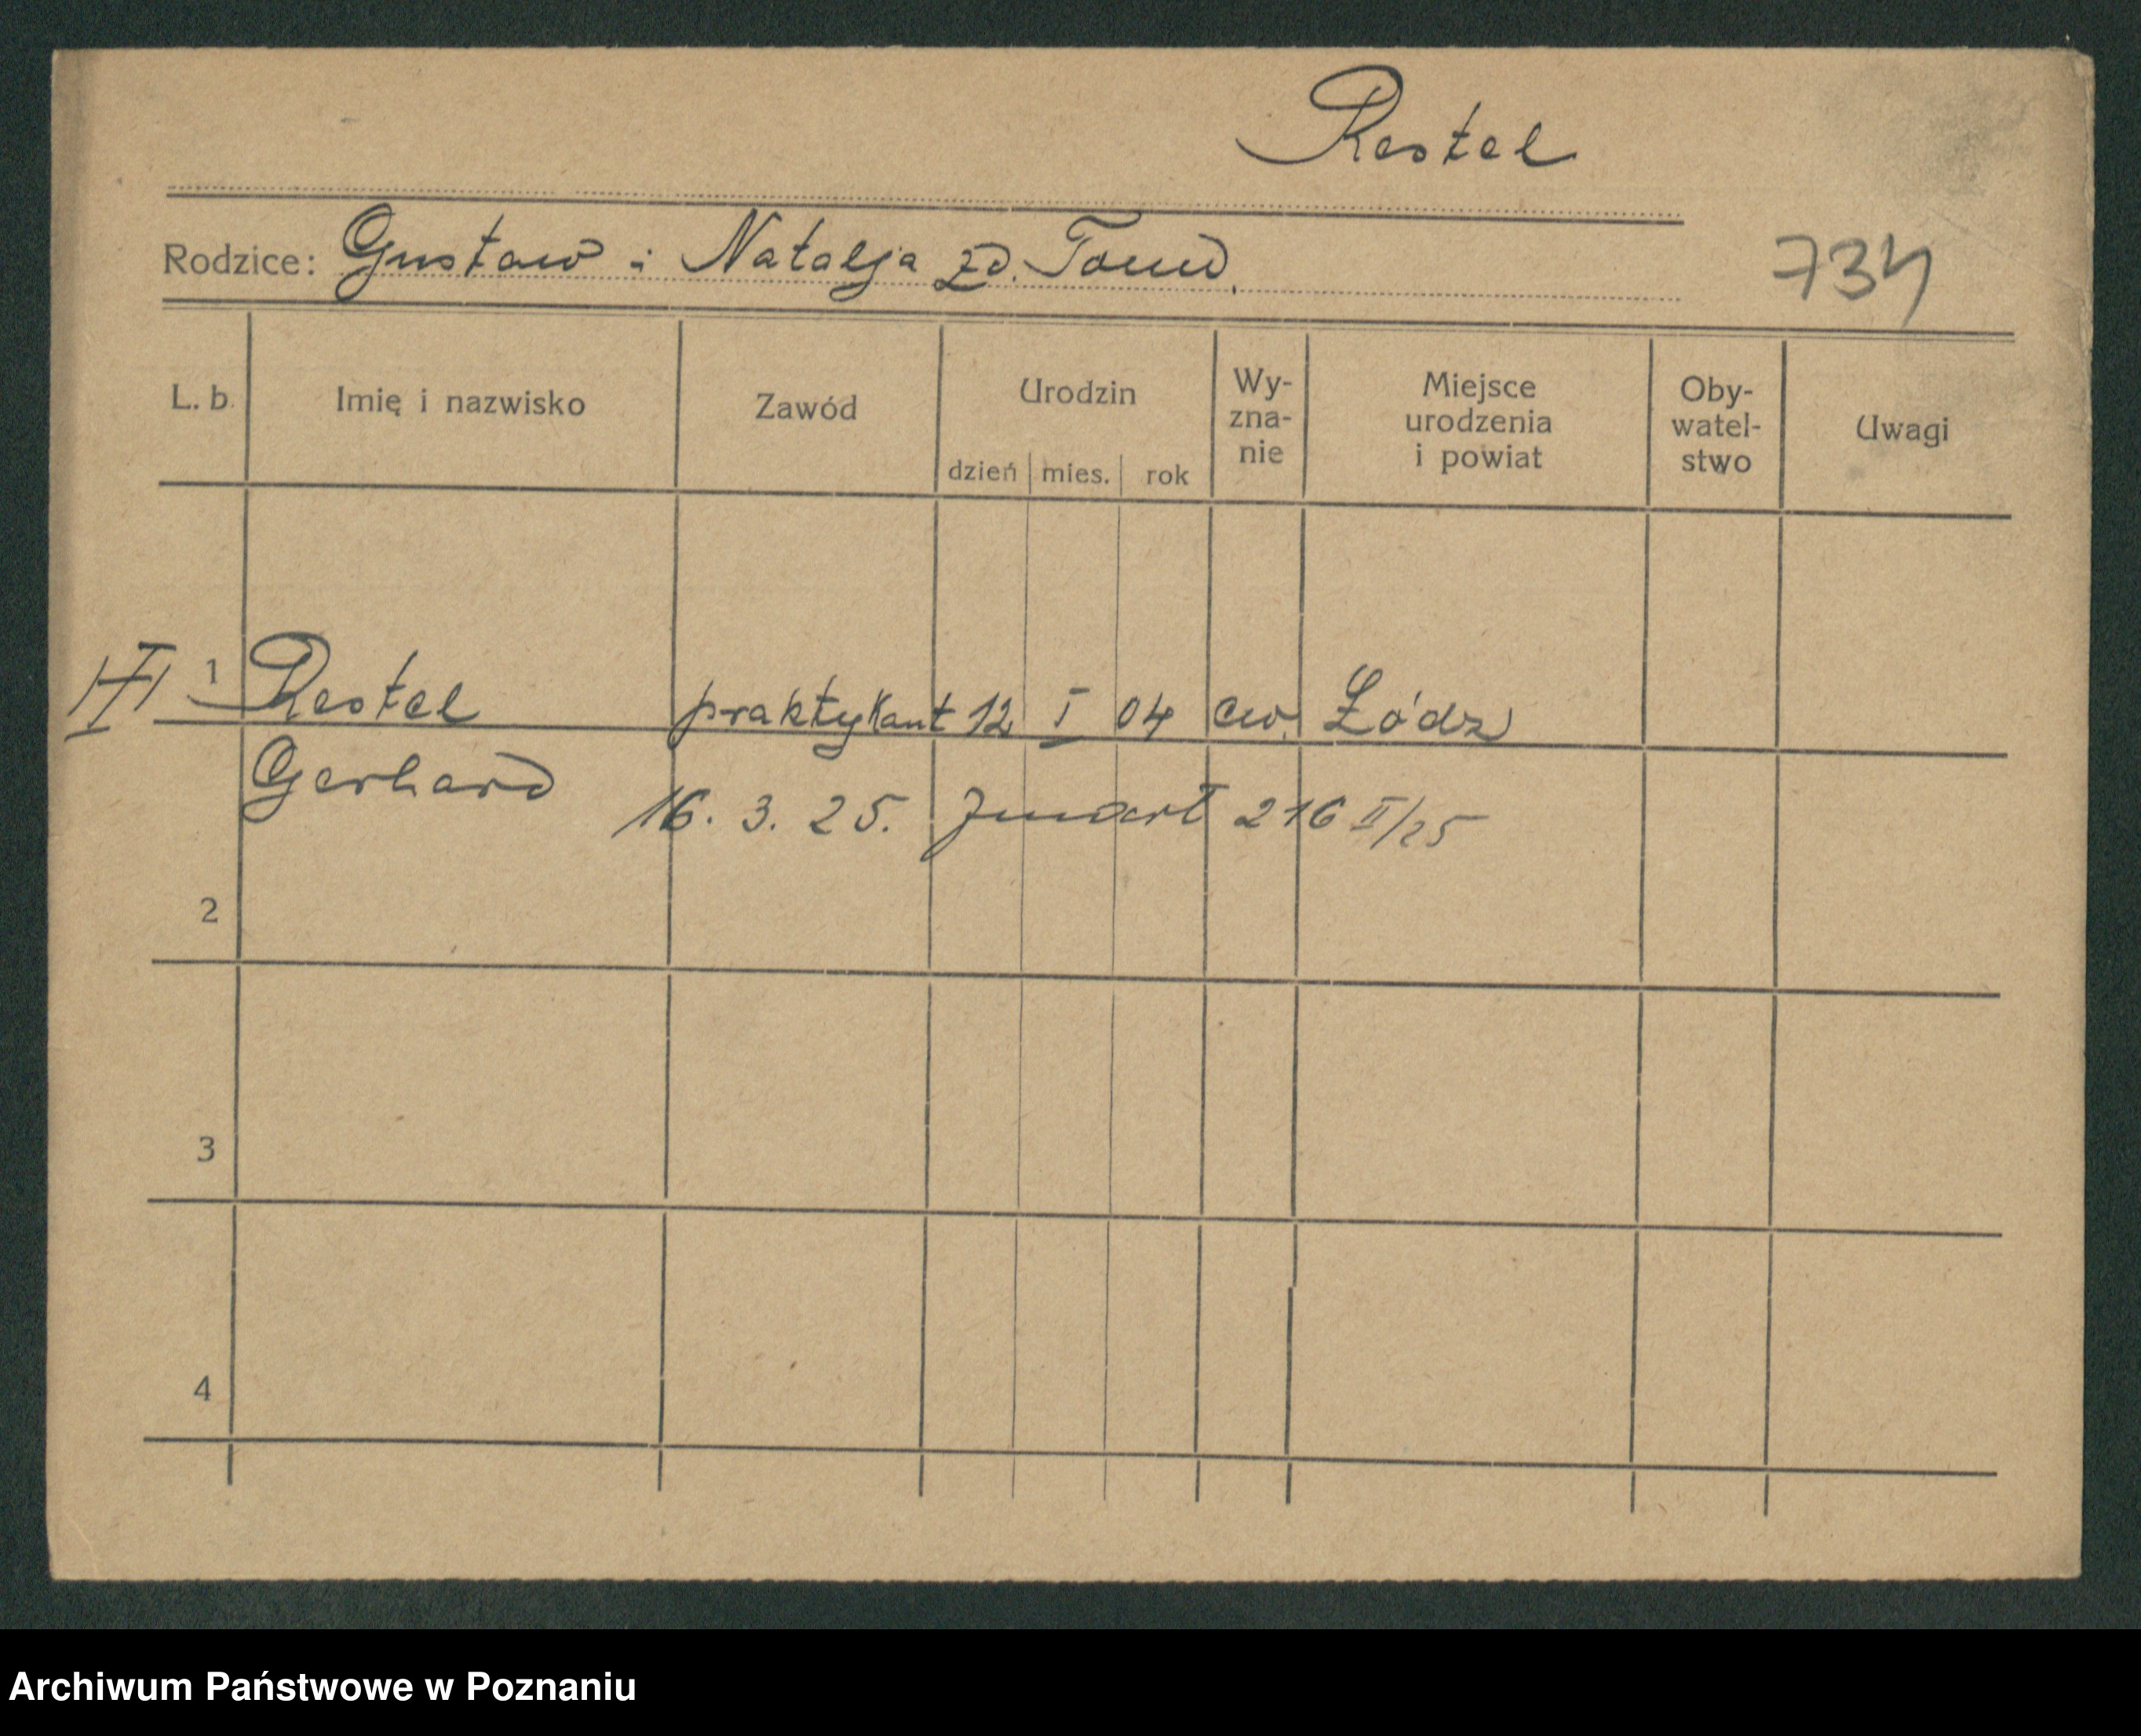 Restel
Rodzice: Gustaw i Natalja zd.
734
L. b. Imię i nazwisko Zawód Urodzin dzień mies. rok Wy-zna-nie Miejsce urodzenia i powiat Oby-watel-stwo Uwagi
1 Restel praktykant 12 I 04 ew. Łódz
Gerhard
16. 3. 25. 216 II/25
2
3
4
Archiwum Państwowe w Poznaniu